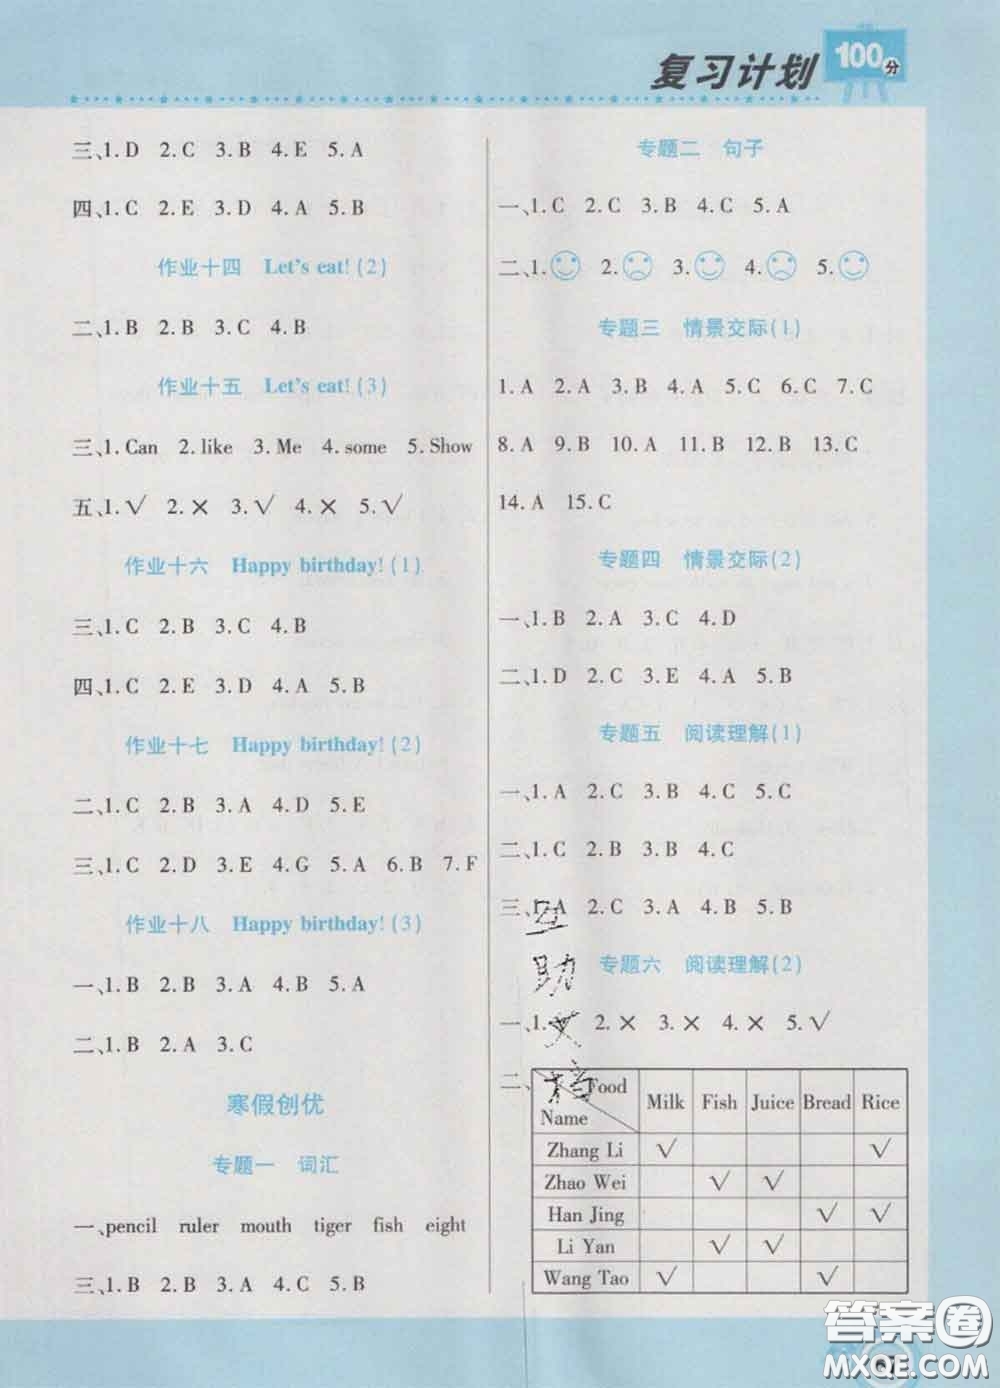 复习计划 100分
三、1.D 2.C 3.B 4.E 5.A
四、1.C 2.E 3.D 4.A 5.B
作业十四 Let's eat!(2)
二、1.B 2.B 3.C 4.B
作业十五 Let's eat!(3)
三、1.Can 2.like 3.Me 4.some 5.Show
五、1.√ 2.× 3.√ 4.× 5.√
作业十六 Happy birthday!(1)
三、1.C 2.B 3.C 4.B
四、1.C 2.E 3.D 4.A 5.B
作业十七 Happy birthday!(2)
二、1.C 2.B 3.A 4.D 5.E
三、1.C 2.D 3.E 4.G 5.A 6.B 7.F
作业十八 Happy birthday!(3)
一、1.B 2.B 3.A 4.B 5.A
二、1.B 2.A 3.C
寒假创优
专题一 词汇
一、pencil ruler mouth tiger fish eight
三、1.B 2.B 3.A 4.C 5.B
专题二 句子
一、1.C 2.C 3.B 4.C 5.A
二、1. 2. 3. 4. 5.
专题三 情景交际(1)
1.A 2.A 3.B 4.A 5.C 6.C 7.C
8.A 9.B 10.A 11.B 12.B 13.C
14.A 15.C
专题四 情景交际(2)
一、1.B 2.A 3.C 4.D
二、1.D 2.C 3.E 4.A 5.B
专题五 阅读理解(1)
一、1.A 2.C 3.B 4.C 5.C
二、1.C 2.B 3.B 4.C
三、1.A 2.C 3.A 4.B 5.B
专题六 阅读理解(2)
一、1. 2.× 3.× 4.× 5.√
二、
Food Milk Fish Juice Bread Rice
Name
Zhang Li √ √
Zhao Wei √ √
Han Jing √ √
Li Yan √ √
Wang Tao √ √
互助文档
答案圈
MXQE.COM